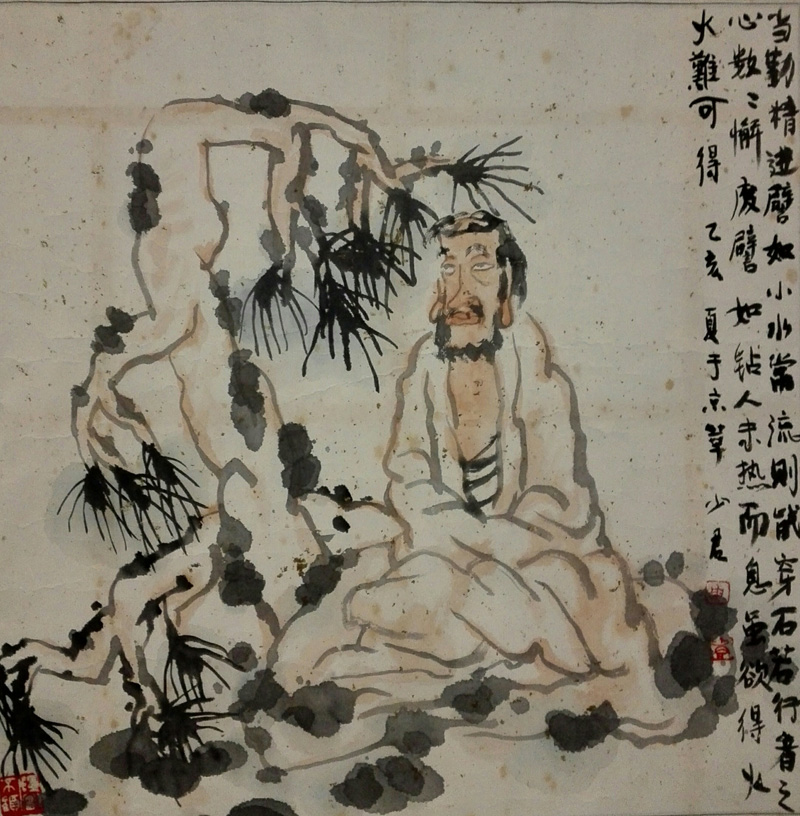 当勤精进譬如小水常流则能穿石若行者之
心数〻懈废譬如钻人未热而息虽欲得火
火難可得 乙亥 夏于京華 少君